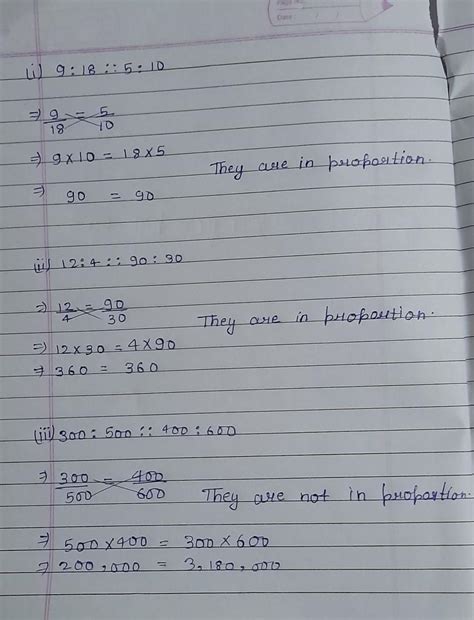 Date
(i) 9 : 18 :: 5 : 10
⇒ 9/18 = 5/10
⇒ 9 × 10 = 18 × 5
They are in proportion.
⇒ 90 = 90
(ii) 12 : 4 :: 90 : 30
⇒ 12/4 = 90/30
They are in proportion.
⇒ 12 × 30 = 4 × 90
⇒ 360 = 360
(iii) 300 : 500 :: 400 : 600
⇒ 300/500 = 400/600
They are not in proportion.
⇒ 500 × 400 = 300 × 600
⇒ 200,000 = 3,180,000